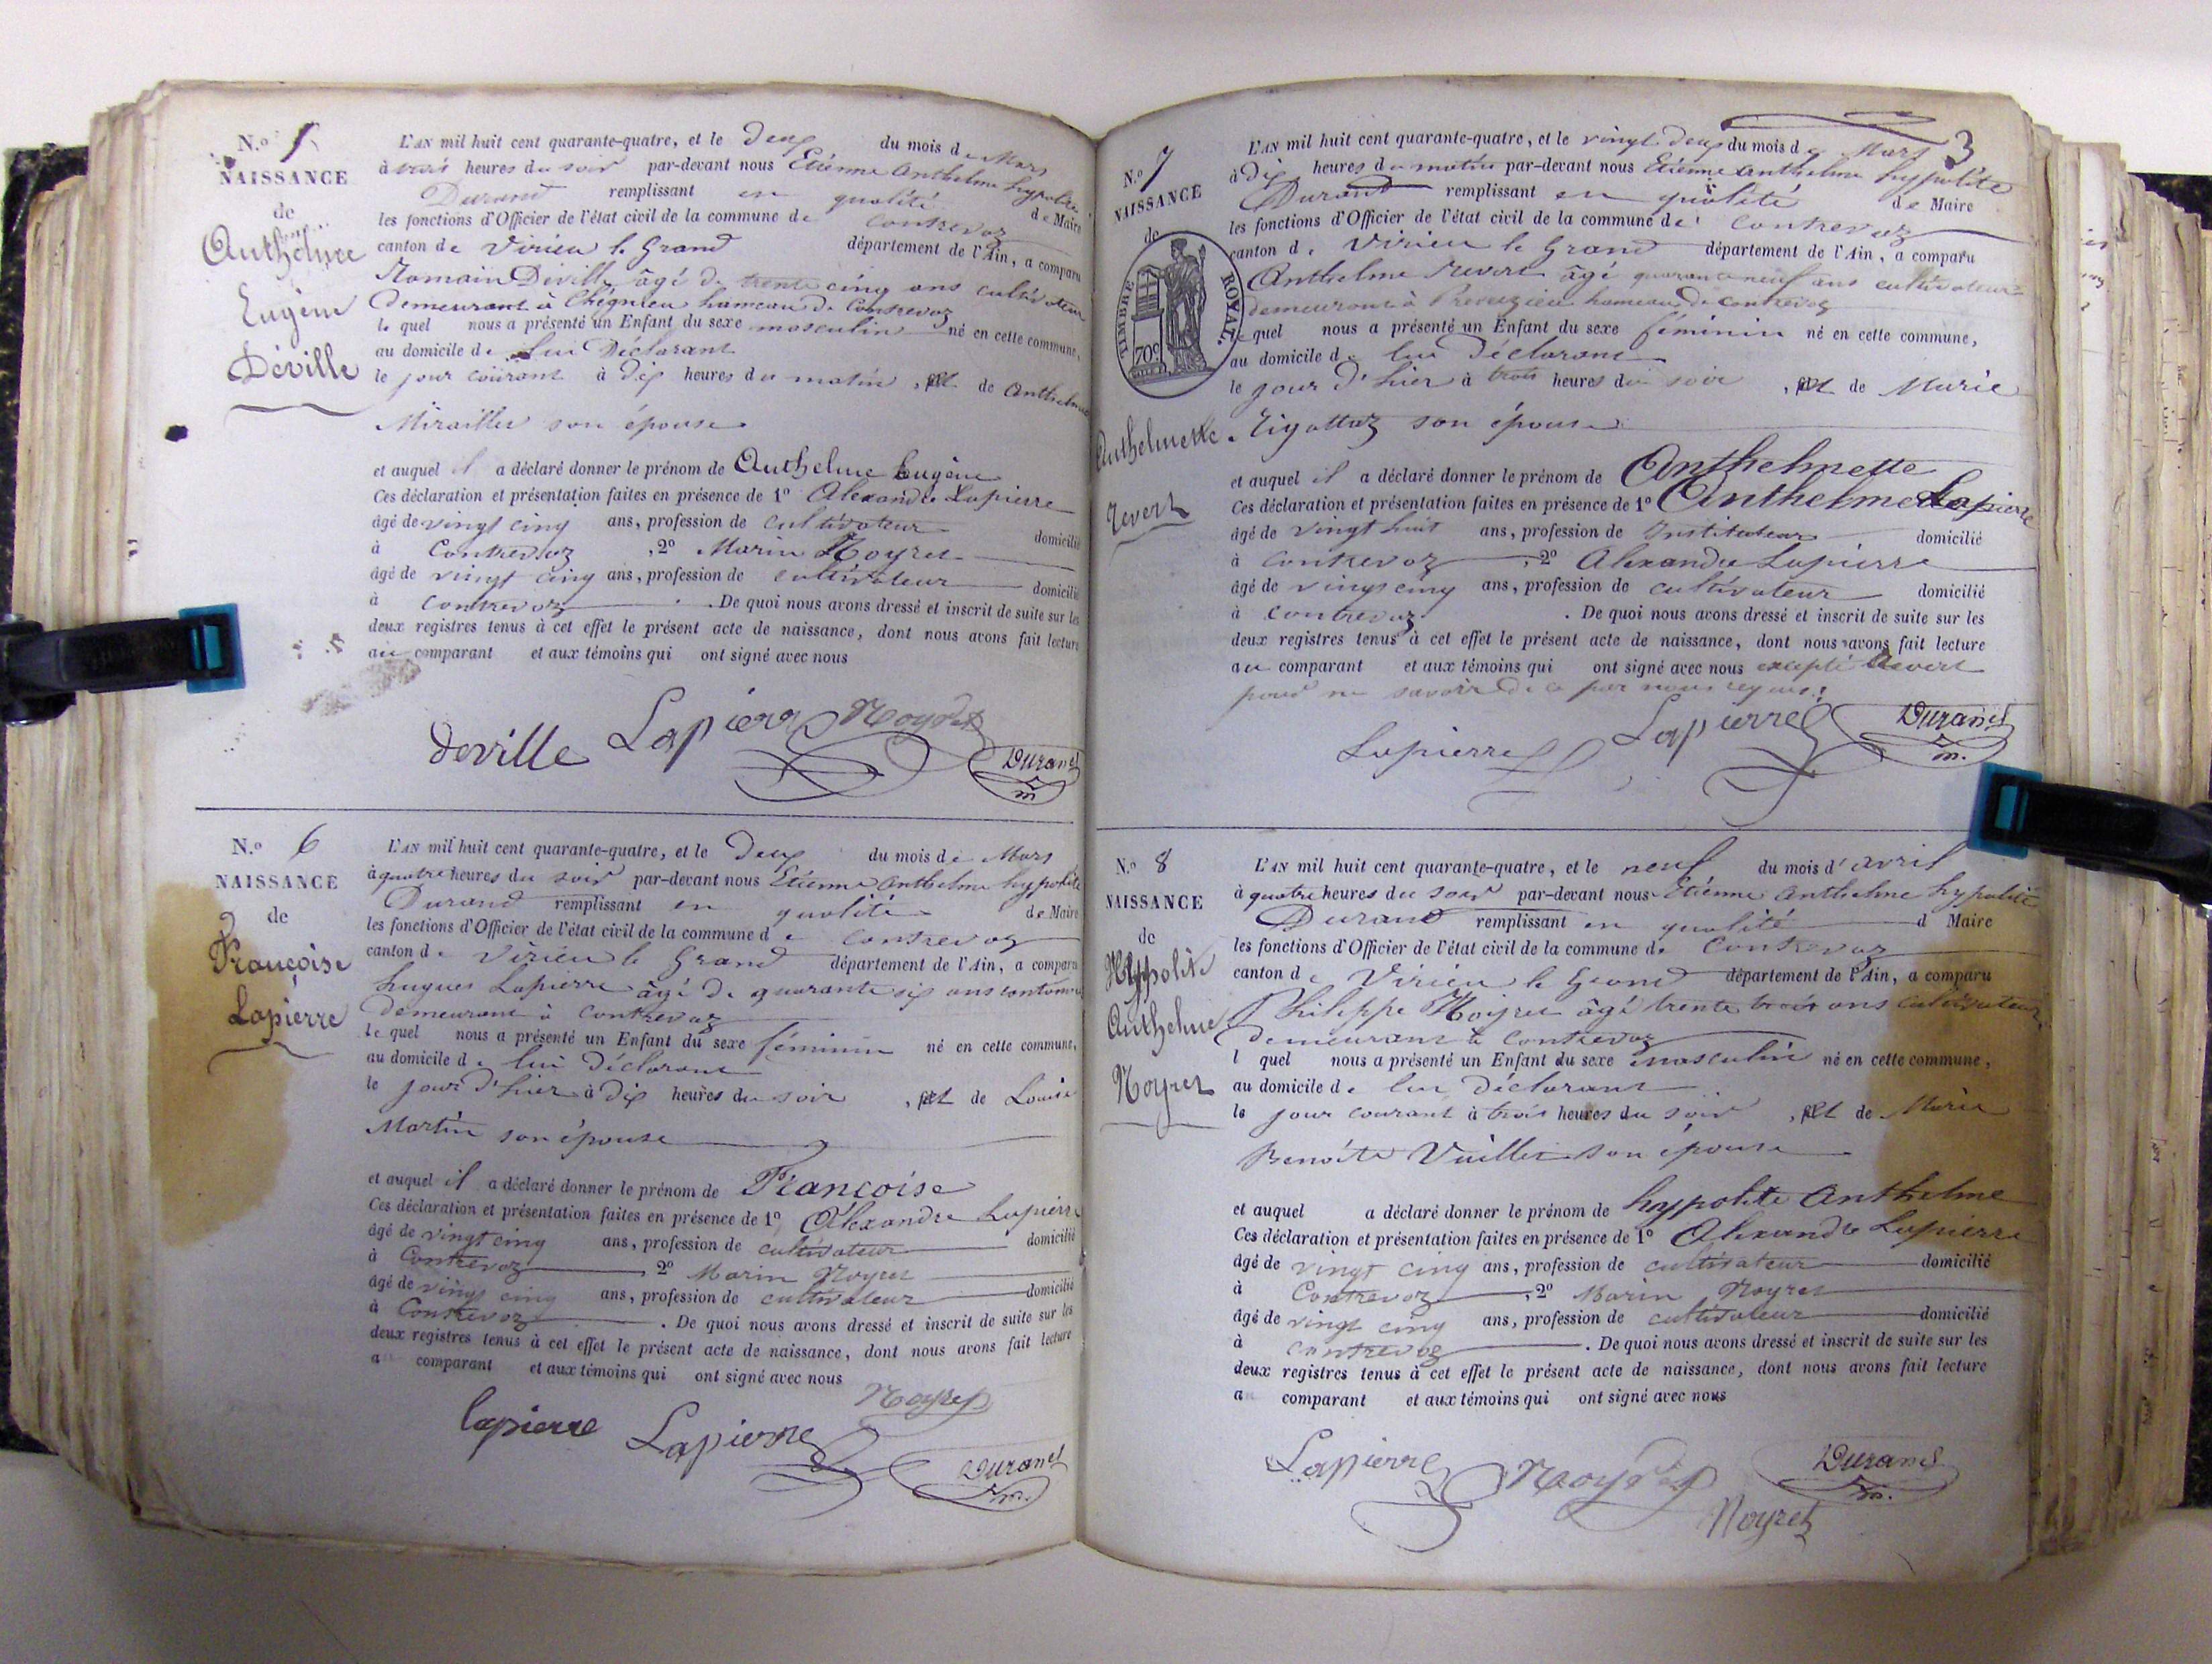 N.º 5
NAISSANCE
de
Anthelme
Eugène
Déville
L'AN mil huit cent quarante-quatre, et le deux du mois de Mars
à trois heures du soir par-devant nous Etienne Anthelme hypolite
Durand remplissant en qualité de Maire
les fonctions d'Officier de l'état civil de la commune de Contrevoz
canton de Virieu le Grand département de l'Ain, a comparu
Romain Deville âgé de trente cinq ans cultivateur
demeurant à Chégnieu hameau de Contrevoz
le quel nous a présenté un Enfant du sexe masculin né en cette commune,
au domicile de lui Déclarant
le jour courant à dix heures du matin, et de Anthelme
Mirailler son épouse
et auquel il a déclaré donner le prénom de Anthelme Eugène
Ces déclaration et présentation faites en présence de 1º Alexandre Lapierre
âgé de vingt cinq ans, profession de cultivateur domicilié
à Contrevoz, 2º Marin Noyret
âgé de vingt cinq ans, profession de cultivateur domicilié
à Contrevoz. De quoi nous avons dressé et inscrit de suite sur les
deux registres tenus à cet effet le présent acte de naissance, dont nous avons fait lecture
au comparant et aux témoins qui ont signé avec nous
deville Lapierre Noyret
Durand
m
N.º 6
NAISSANCE
de
Françoise
Lapierre
L'AN mil huit cent quarante-quatre, et le deux du mois de Mars
à quatre heures du soir par-devant nous Etienne Anthelme hypolite
Durand remplissant en qualité de Maire
les fonctions d'Officier de l'état civil de la commune de Contrevoz
canton de Virieu le Grand département de l'Ain, a comparu
hugues Lapierre âgé de quarante six ans
demeurant à Contrevoz
le quel nous a présenté un Enfant du sexe féminin né en cette commune,
au domicile de lui Déclarant
le jour d'hier à dix heures du soir, et de Louise
Martin son épouse
et auquel il a déclaré donner le prénom de Françoise
Ces déclaration et présentation faites en présence de 1º Alexandre Lapierre
âgé de vingt cinq ans, profession de cultivateur domicilié
à Contrevoz, 2º Marin Noyret
âgé de vingt cinq ans, profession de cultivateur domicilié
à Contrevoz. De quoi nous avons dressé et inscrit de suite sur les
deux registres tenus à cet effet le présent acte de naissance, dont nous avons fait lecture
a comparant et aux témoins qui ont signé avec nous
lapierre Lapierre Noyret
Durand
m.
3
N.º 7
NAISSANCE
de
TIMBRE ROYAL.
70c
Anthelmette
Revert
L'AN mil huit cent quarante-quatre, et le vingt deux du mois de Mars
à dix heures du matin par-devant nous Etienne Anthelme hyppolite
Durand remplissant en qualité de Maire
les fonctions d'Officier de l'état civil de la commune de Contrevoz
canton de Virieu le Grand département de l'Ain, a comparu
Anthelme Revert âgé quarante neuf ans cultivateur
demeurant à Preveyzieu hameau de Contrevoz
le quel nous a présenté un Enfant du sexe féminin né en cette commune,
au domicile de lui Déclarant
le jour d'hier à trois heures du soir, et de Marie
Rigottaz son épouse
et auquel il a déclaré donner le prénom de Anthelmette
Ces déclaration et présentation faites en présence de 1º Anthelme Lapierre
âgé de vingt huit ans, profession de Instituteur domicilié
à Contrevoz, 2º Alexandre Lapierre
âgé de vingt cinq ans, profession de cultivateur domicilié
à Contrevoz. De quoi nous avons dressé et inscrit de suite sur les
deux registres tenus à cet effet le présent acte de naissance, dont nous avons fait lecture
au comparant et aux témoins qui ont signé avec nous excepté Revert
pour ne savoir de ce par nous requis.
Lapierre Lapierre Durand
m.
N.º 8
NAISSANCE
de
Hyppolite
Anthelme
Noyret
L'AN mil huit cent quarante-quatre, et le neuf du mois d'avril
à quatre heures du soir par-devant nous Etienne Anthelme hypolite
Durand remplissant en qualité d Maire
les fonctions d'Officier de l'état civil de la commune de Contrevoz
canton de Virieu le Grand département de l'Ain, a comparu
Philippe Noyret âgé trente trois ans cultivateur
demeurant à Contrevoz
l quel nous a présenté un Enfant du sexe masculin né en cette commune,
au domicile de lui déclarant
le jour courant à trois heures du soir, et de Marie
Benoite Vuillet son épouse
et auquel a déclaré donner le prénom de hyppolite Anthelme
Ces déclaration et présentation faites en présence de 1º Alexandre Lapierre
âgé de vingt cinq ans, profession de cultivateur domicilié
à Contrevoz, 2º Marin Noyret
âgé de vingt cinq ans, profession de cultivateur domicilié
à Contrevoz. De quoi nous avons dressé et inscrit de suite sur les
deux registres tenus à cet effet le présent acte de naissance, dont nous avons fait lecture
au comparant et aux témoins qui ont signé avec nous
Lapierre Noyret Durand
m.
Noyret